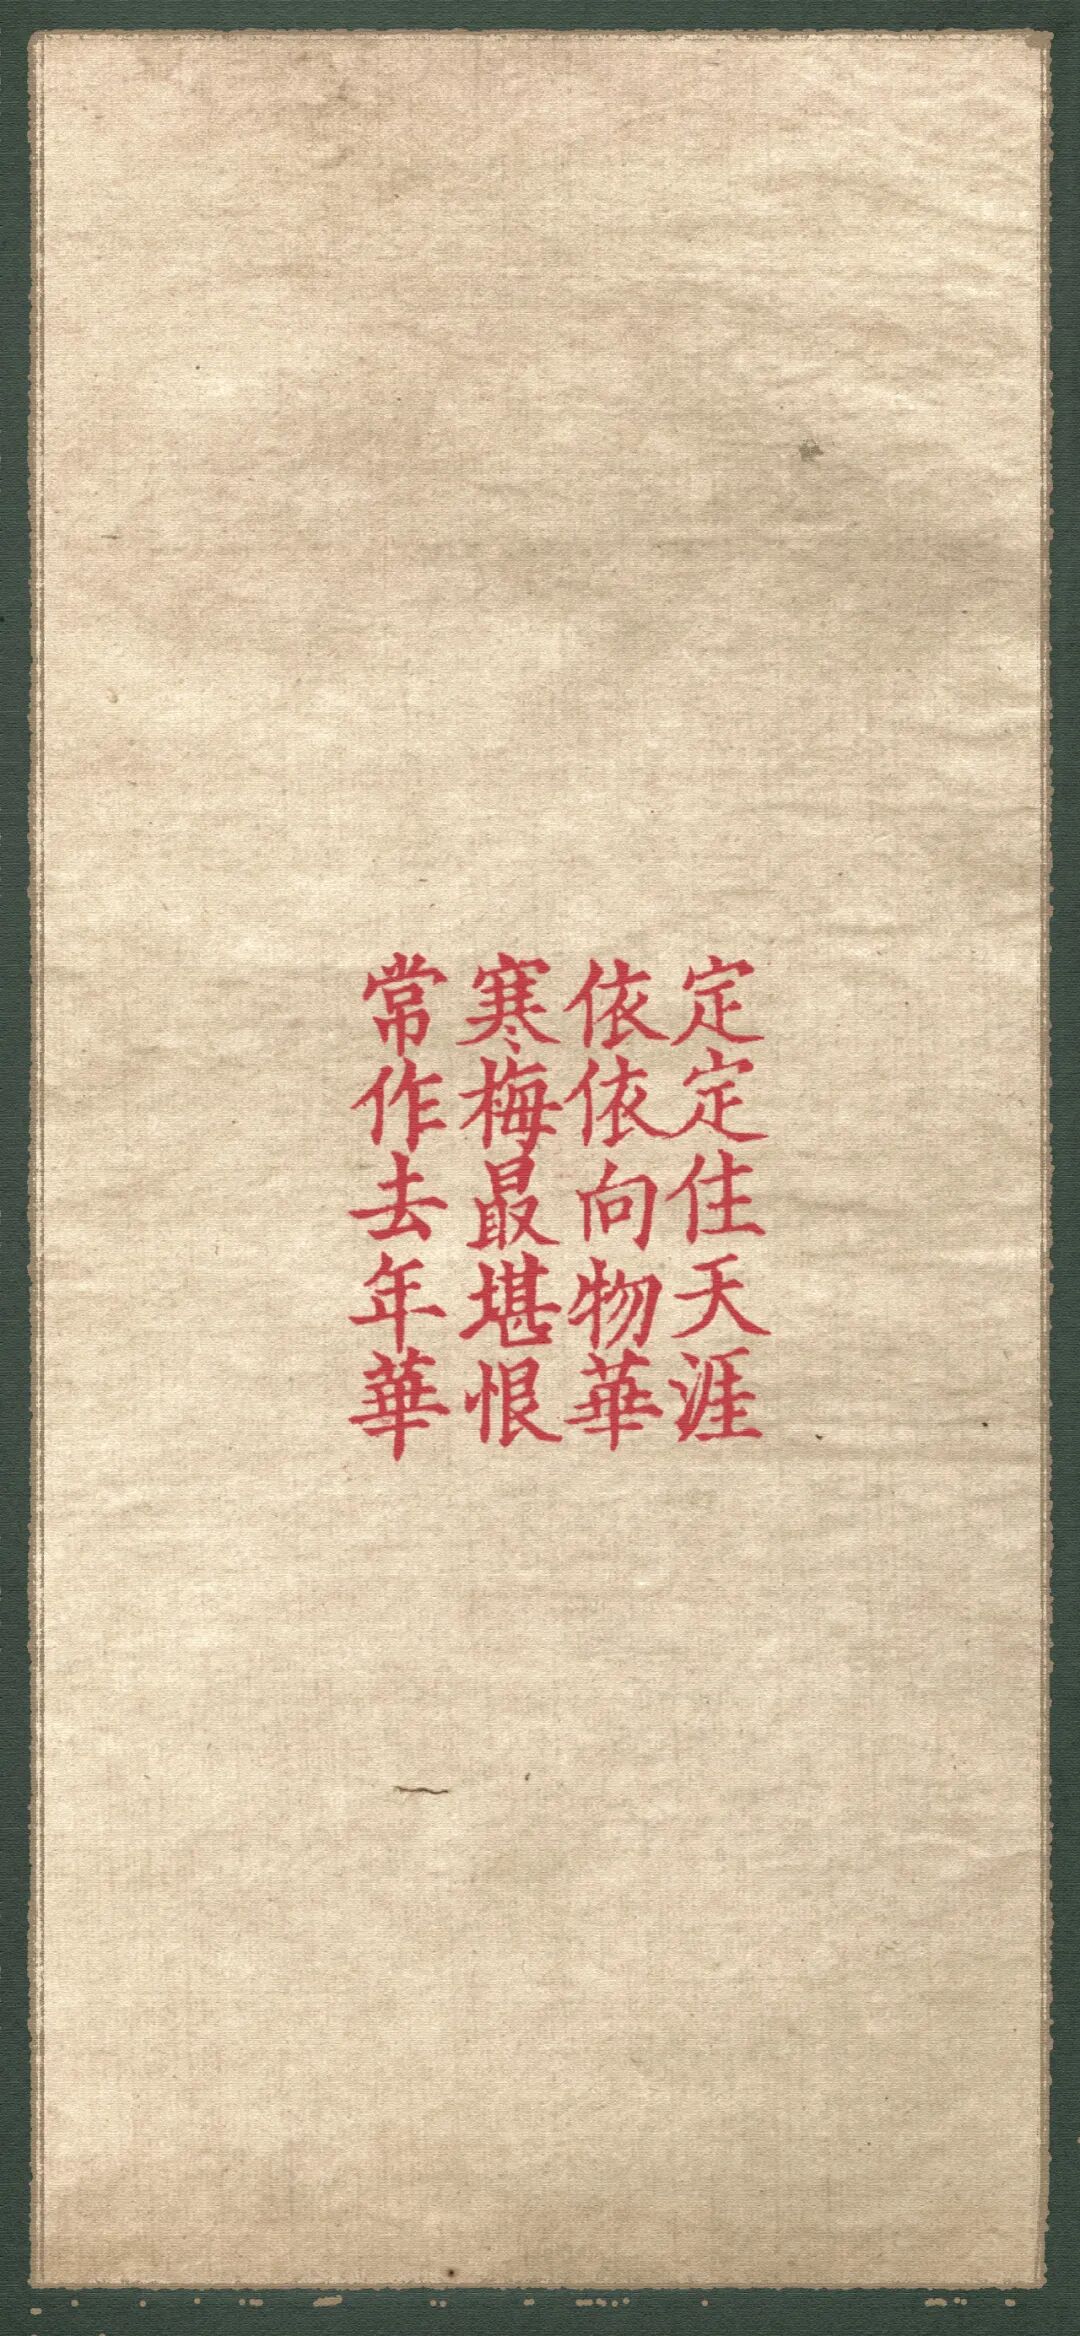 定定住天涯
依依向物華
寒梅最堪恨
常作去年華